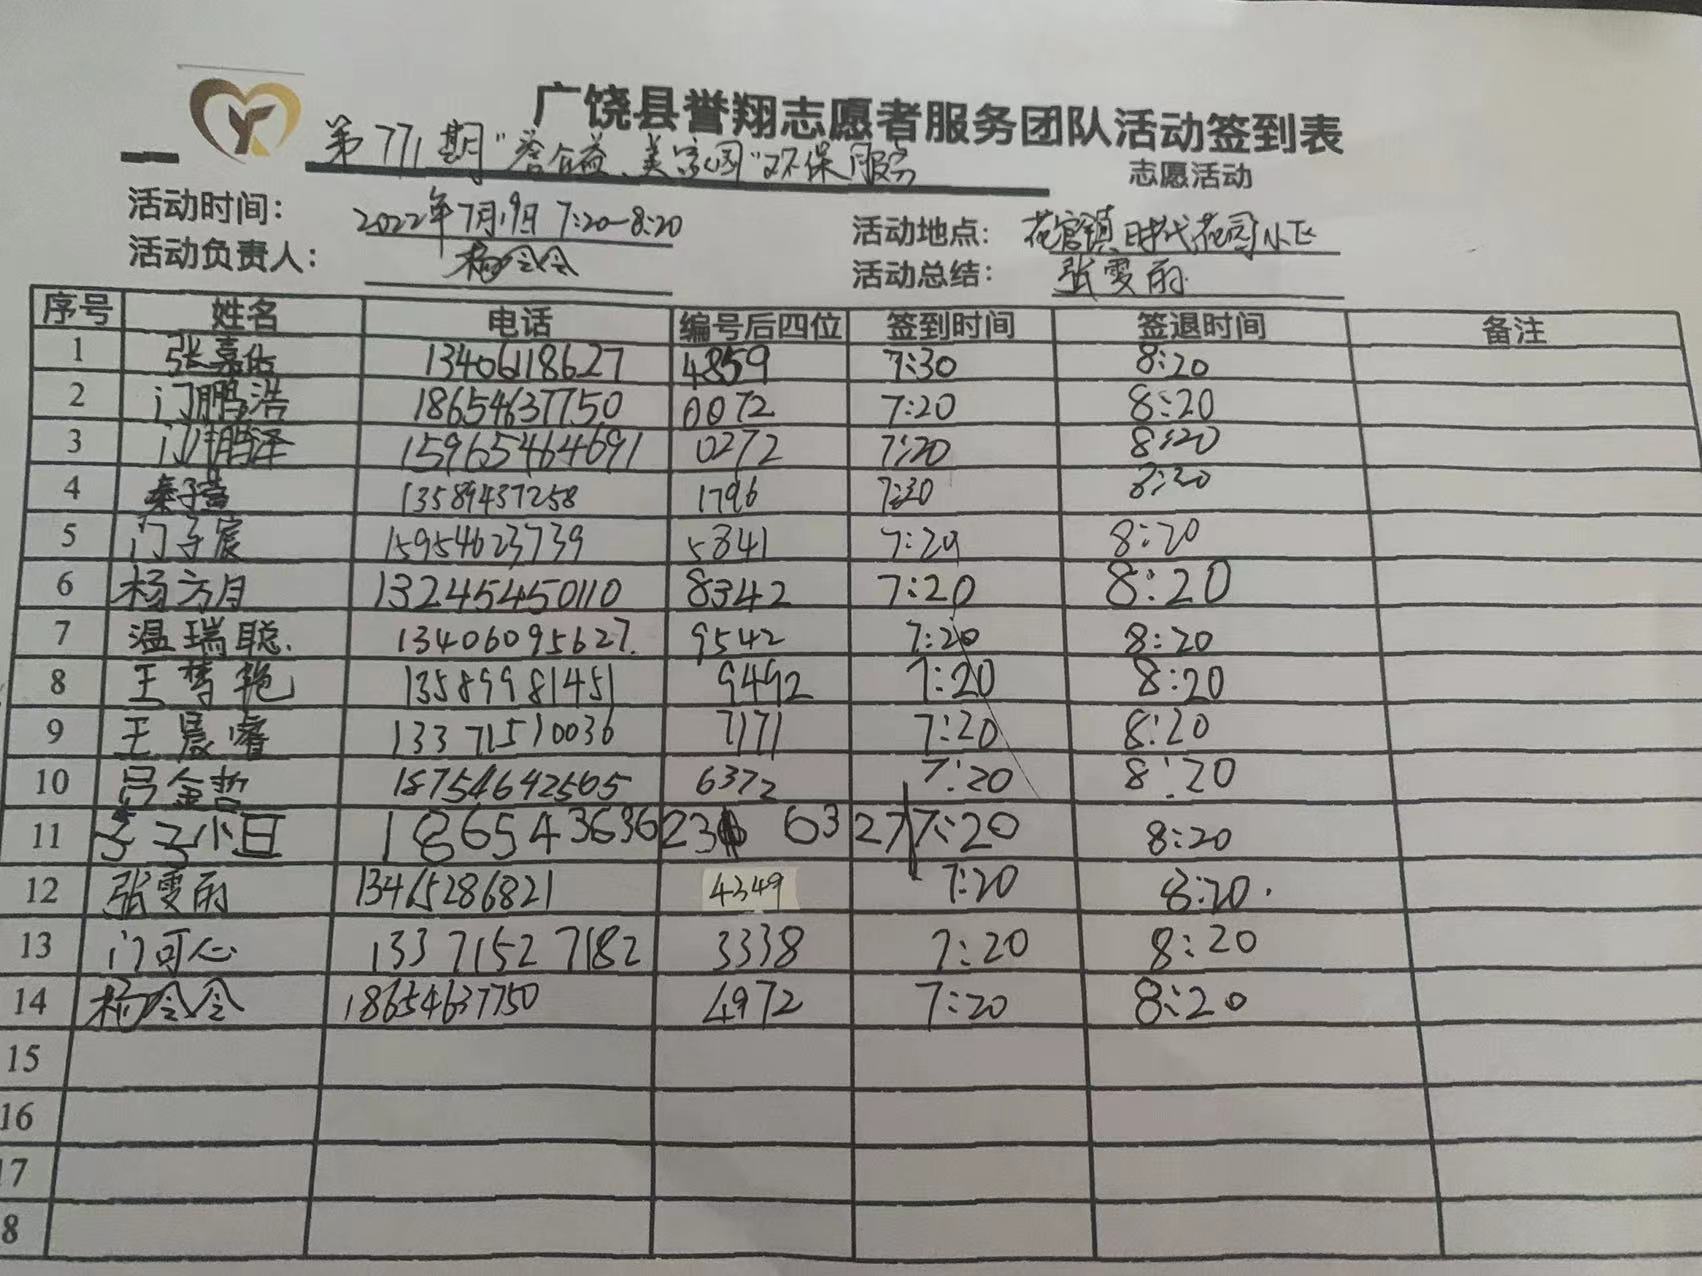 广饶县誉翔志愿者服务团队活动签到表
第771期"誉公益、美家园"环保服务 志愿活动
活动时间: 2022年7月19日 7:20-8:20 活动地点: 花官镇时代花园小区
活动负责人: 杨令令 活动总结: 张雯雨
序号 姓名 电话 编号后四位 签到时间 签退时间 备注
1 张嘉佑 13406118627 4859 7:30 8:20
2 门鹏浩 18654637750 0072 7:20 8:20
3 门鹏泽 159654464691 0272 7:20 8:20
4 秦子萱 13589437258 1796 7:30 8:30
5 门子宸 15954623739 5841 7:20 8:20
6 杨方月 132454450110 8342 7:20 8:20
7 温瑞聪. 13406095627. 9542 7:20 8:20
8 王梦艳 13589981451 9492 7:20 8:20
9 王晨睿 13371510036 7171 7:20 8:20
10 吕金哲 18754642505 6372 7:20 8:20
11 18654363623 6327 7:20 8:20
12 张雯雨 13465286821 4349 7:20 8:20.
13 门可心 13371527182 3338 7:20 8:20
14 杨令令 18654637750 4972 7:20 8:20
15
16
17
8